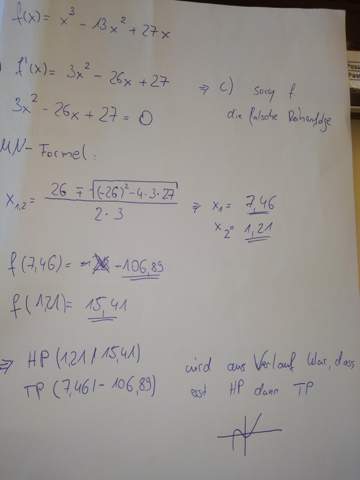 f(x) = x³ - 13x² + 27x
) f'(x) = 3x² - 26x + 27 ⇒ c) sorry f
die falsche Reihenfolge
3x² - 26x + 27 = 0
MN-Formel:
x₁,₂ = (26 ∓ √((-26)² - 4·3·27)) / (2·3) ⇒ x₁ = 7,46
x₂ = 1,21
f(7,46) = -106,89
f(1,21) = 15,41
⇒ HP (1,21 / 15,41) wird aus Verlauf klar, dass
TP (7,46 / - 106,89) erst HP dann TP